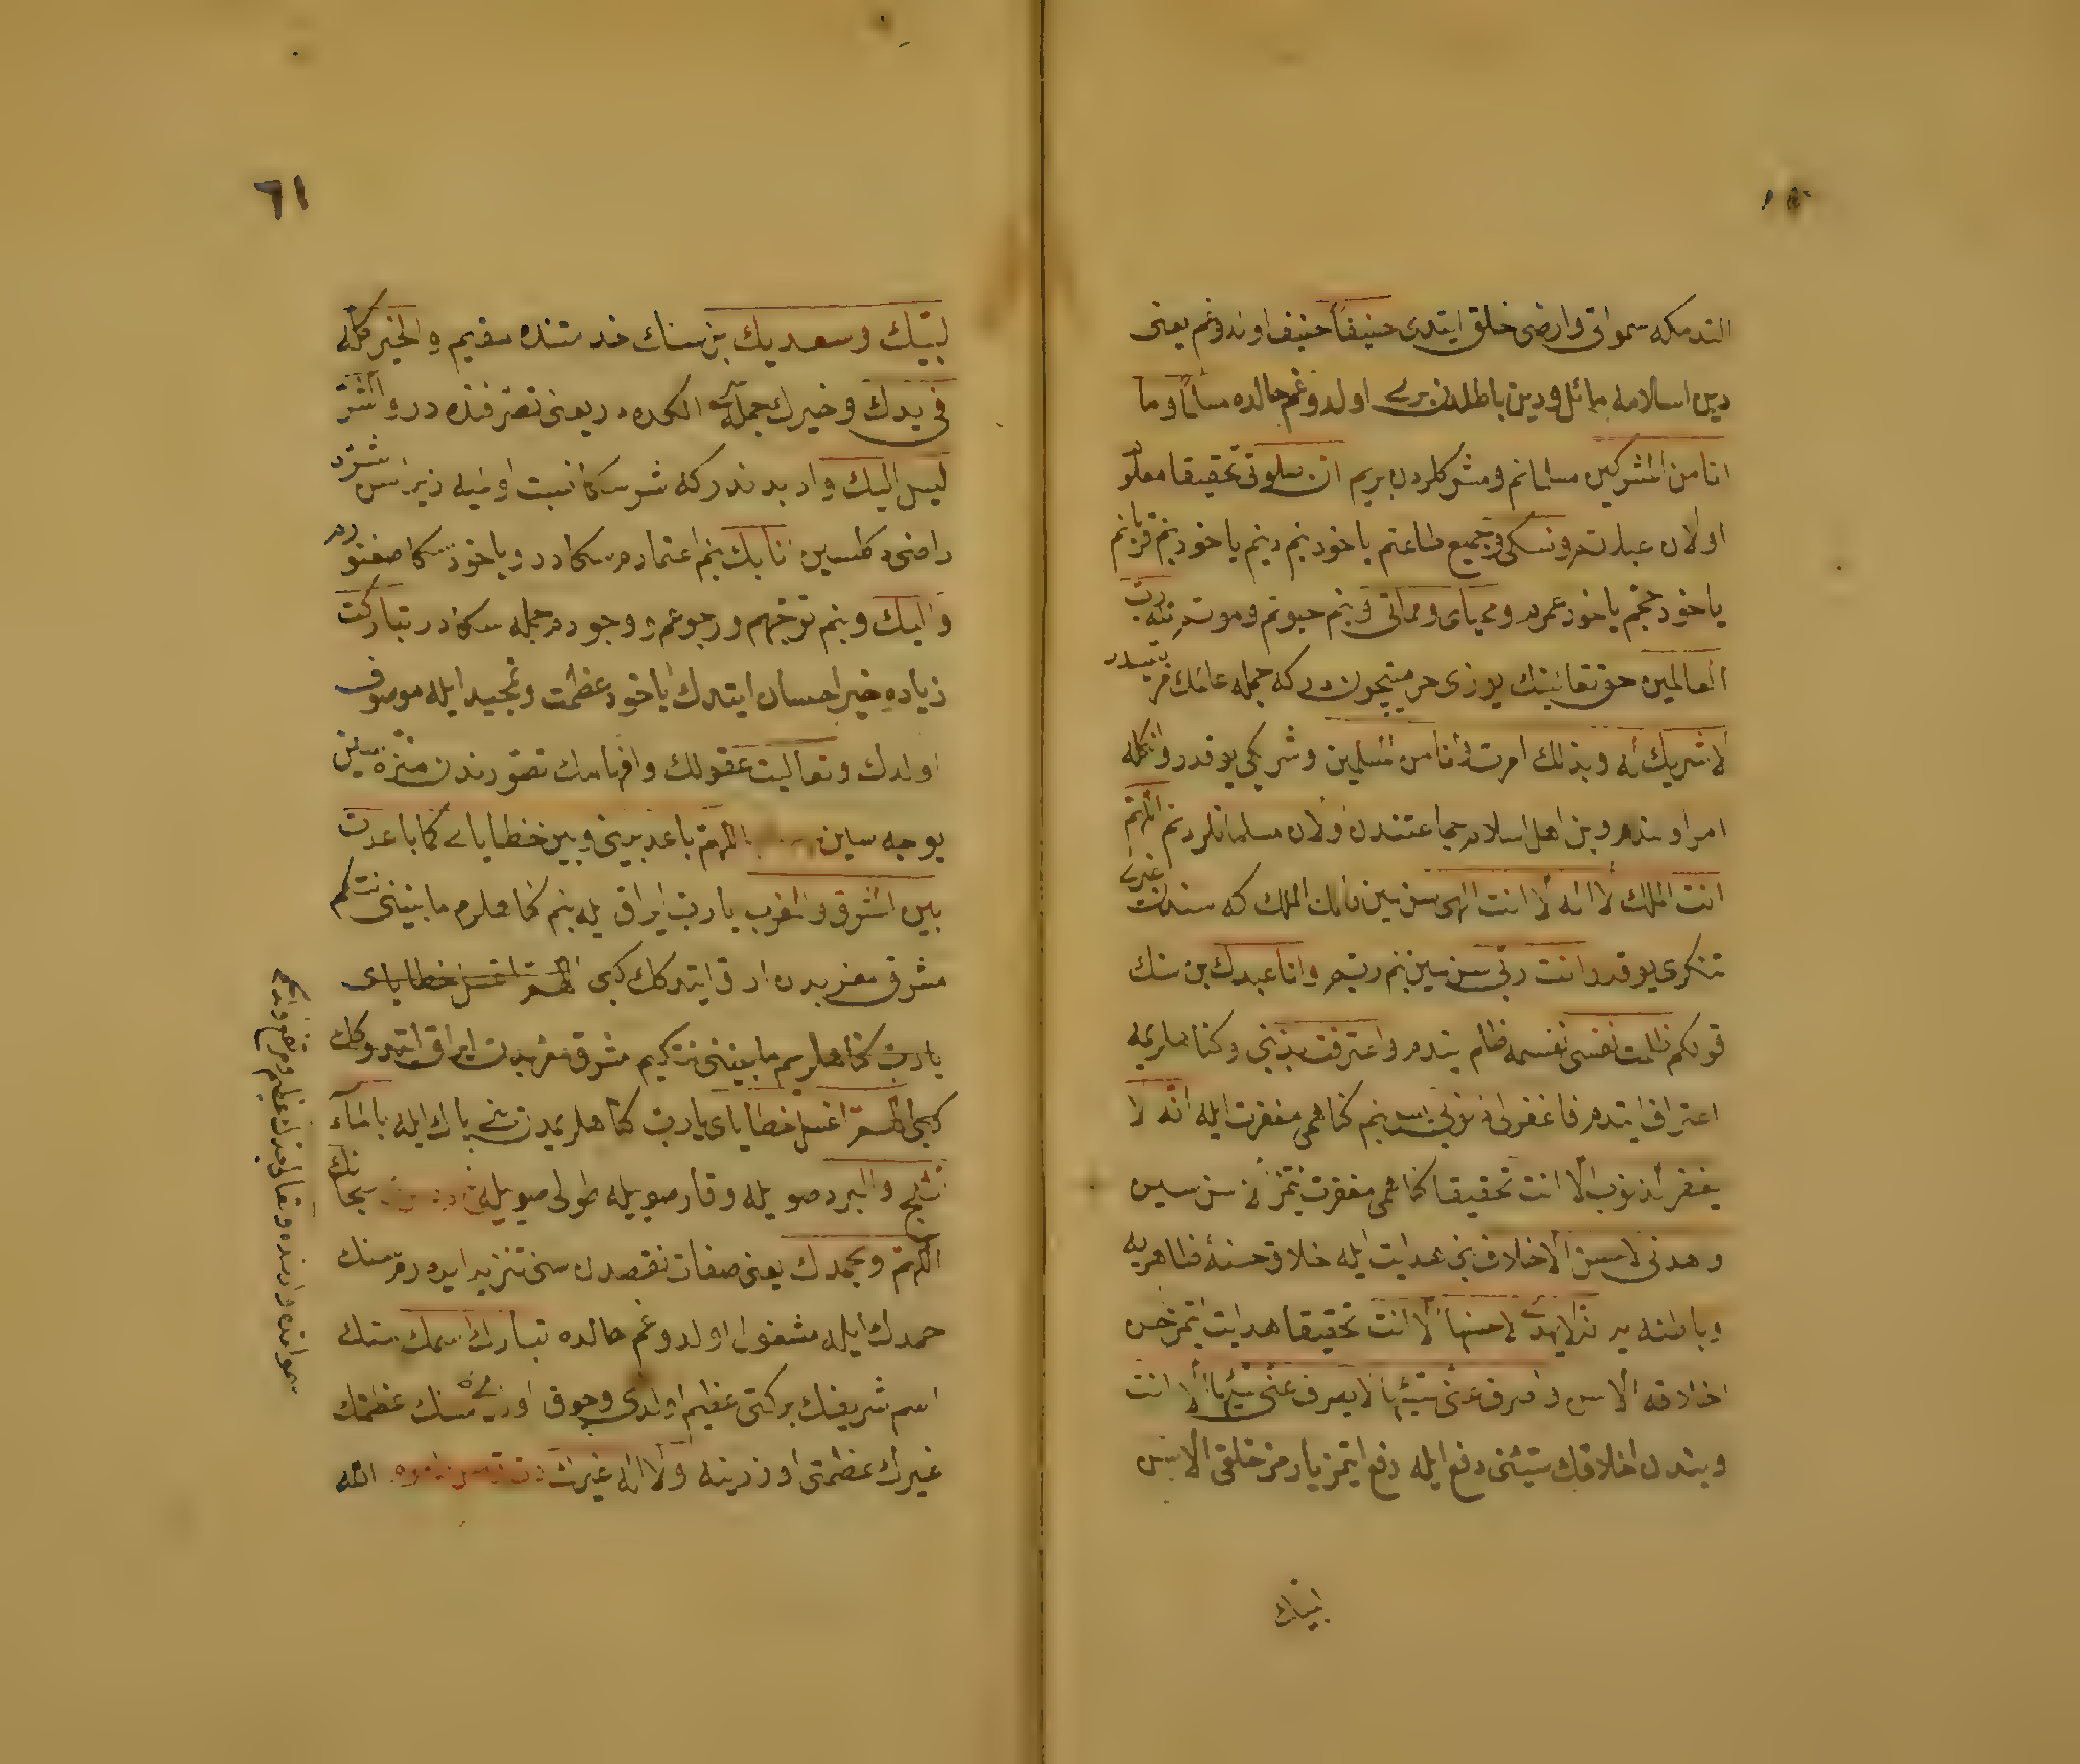 ایتدمکه سمواتی و ارضی خلق ایتدی حنیفاً حنیف اولدوغم یعنی
دین اسلامه مائل و دین باطلدن بری اولدوغم حالده مسلماً وما
انا من المشركين مسلمانم و مشرکلردن بریم ان صلوتی تحقیقا معلوم
اولان عبارتم و نسکی و جمیع طاعتم یاخود بنم دینم یاخود بنم قربانم
یاخود حجم یاخود عمرم و محیای و مماتی و بنم حیوتم و موتم لله رب
العالمین حق تعالینك یوزی حرمتیچون در که جمله عالمك مربیسیدر
لا شریك له و بذلك امرت و انا من المسلمین و شریکی یوقدر و انکله
امر اولندم و بن اهل اسلام جماعتندن اولان مسلمانلردنم اللهم
انت الملك لا اله الا انت الهی سن سین مالك الملك که سندن غیری
تنکری یوقدر انت ربی سن سین بنم ربم و انا عبدك بن سنك
قولکم ظلمت نفسی نفسمه ظلم ایتدم و اعترفت بذنبی و کناهلریمه
اعتراف ایتدم فاغفر لی ذنوبی بنم کناهمی مغفرت ایله انه لا
یغفر الذنوب الا انت تحقیقا کناهمی مغفرت ایتمز الا سن سین
و اهدنی لاحسن الاخلاق بنی هدایت ایله اخلاق حسنۀ ظاهریه
و باطنه یه لا یهدی لاحسنها الا انت تحقیقا هدایت ایتمز احسن
اخلاقه الا سن و اصرف عنی سیئها لا یصرف عنی سیئها الا انت
و بندن اخلاقك سیئنی دفع ایله دفع ایتمز یارامز خلقی الا سن
لبیك
٦١
لبیك و سعدیك بن سنك خدمتنده مقیم و الخیر کله
فی یدك و خیرك جمله سی الکده در یعنی تصرفنده در و الشر
لیس الیك و ادبدندر که شر سکا نسبت اولنمیه زیرا سن شره
راضی دکلسین انا بك بنم اعتمادم سکادر و یاخود سکا صغنورم
و الیك و بنم توجهم و رجوعم و وجودم جمله سکادر تبارکت
زیاده خیر احسان ایتدك یاخود عظمت و تمجید ایله موصوف
اولدك و تعالیت عقولك و افهامك تصورندن منزه سین
یوجه سین اللهم باعد بینی و بین خطایای کما باعدت
بین المشرق و المغرب یا رب ایراق ایله بنم کناهلرم مابینی نتکم
مشرق مغربدن ایراق ایتدکك کبی اللهم اغسل خطایای
یا رب کناهلریم مابینی نتکیم مشرق مغربدن ایراق ایتدوکك
کبی اللهم اغسل خطایای یا رب کناهلریمدن بنی پاك ایله بالماء
و الثلج و البرد صو یله و قار صویله طولی صویله سبحانك
اللهم و بحمدك یعنی صفات نقصدن سنی تنزیه ایدرم سنك
حمدك ایله مشغول اولدوغم حالده تبارك اسمك سنك
اسم شریفك برکتی عظیم اولدی و چوق اولدی سنك عظمتك
غیرك عظمتی اوزرینه و لا اله غیرك الله